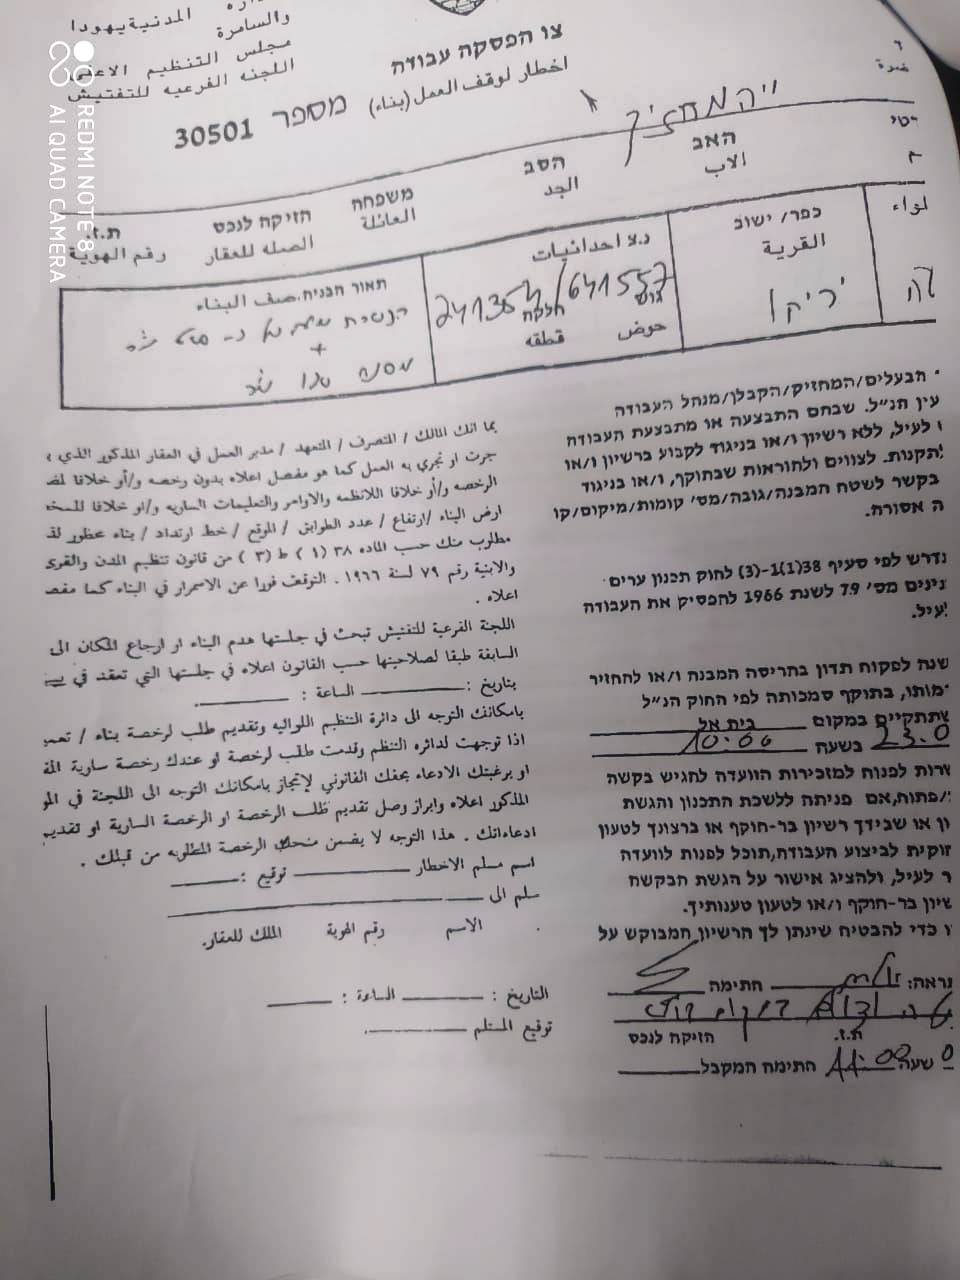 المدنية يهودا
والسامرة
مجلس التنظيم الاعلى
اللجنه الفرعيه للتفتيش
צו הפסקה עבודה
اخطار لوقف العمل (بناء)
מספר 30501
האב
الاب
הסב
الجد
משפחה
العائلة
חזיקה לנכס
الصله للعقار
ת.ז.
رقم الهوية
لواء
כפר/ ישוב
القرية
יריקו
נ.צ احداثيات
241354/641557
גוש
חלקה
حوض
قطقه
תאור הבניה.صف البناء
+
הבעלים/המחזיק/הקבלן/מנהל העבודה
עין הנ״ל. שבהם התבצעה או מתבצעת העבודה
לעיל, ללא רשיון ו/או בניגוד לקבוע ברשיון ו/או
תקנות. לצווים ולהוראות שבתוקף, ו/או בניגוד
בקשר לשטח המבנה/גובה/מס׳ קומות/מיקום/קו
ה אסורה.
נדרש לפי סעיף 38(1)-(3) לחוק תכנון ערים
מס׳ 79 לשנת 1966 להפסיק את העבודה
עיל.
שנה לפקוח תדון בהריסה המבנה ו/או להחזיר
מותו, בתוקף סמכותה לפי החוק הנ״ל
שתתקיים במקום בית אל
23.0 בשעה 10:00
רות לפנות למזכירות הוועדה להגיש בקשה
/פתוח,אם פניתה ללשכת התכנון והגשת
ון או שבידך רשיון בר-חוקף או ברצונך לטעון
חוקית לביצוע העבודה,תוכל לפנות לוועדה
ר לעיל, ולהציג אישור על הגשת הבקשה
שיון בר-חוקף ו/או לטעון טענותיך.
ו כדי להבטיח שינתן לך הרשיון המבוקש על
נראה: חתימה
ת.ז. חזיקה לנכס
שעה 11:00 חתימה המקבל
بما انك المالك / المتصرف / المتعهد / مدير العمل في العقار المذكور الذي
جرت او تجري به العمل كما هو مفصل اعلاه بدون رخصه و/أو خلافا
الرخصه و/أو خلافا للانظمه والاوامر والتعليمات الساريه و/او خلافا
ارض البناء /ارتفاع / عدد الطوابق / الموقع / خط ارتداد / بناء عظور
مطلوب منك حسب الماده ٣٨ (١) ط (٣) من قانون تنظيم المدن والقرى
والابنية رقم ٧٩ لسنة ١٩٦٦ . التوقف فورا عن الاسمرار في البناء كما
اعلاه .
اللجنة الفرعية للتفتيش تبحث في جلستها هدم البناء او ارجاع المكان الى
السابقة طبقا لصلاحيتها حسب القانون اعلاه في جلستها التي تعقد في
بتاريخ : الساعة :
بامكانك التوجه الى دائرة التنظيم اللوائيه وتقديم طلب لرخصة بناء /
اذا توجهت لدائره التنظم وقدمت طلب لرخصة او عندك رخصة سارية
او برغبتك الادعاء بحقك القانوني لإنجاز بامكانك التوجه الى اللجنة في
المذكور اعلاه وابراز وصل تقديم طلب الرخصة او الرخصة السارية او تقديم
ادعاءاتك . هذا التوجه لا يضمن منحك الرخصة المطلوبه من قبلك .
اسم مسلم الاخطار توقيع :
سلم الى
الاسم رقم الهوية الملك للعقار.
التاريخ : الساعة :
توقيع المستلم
REDMI NOTE 8
AI QUAD CAMERA